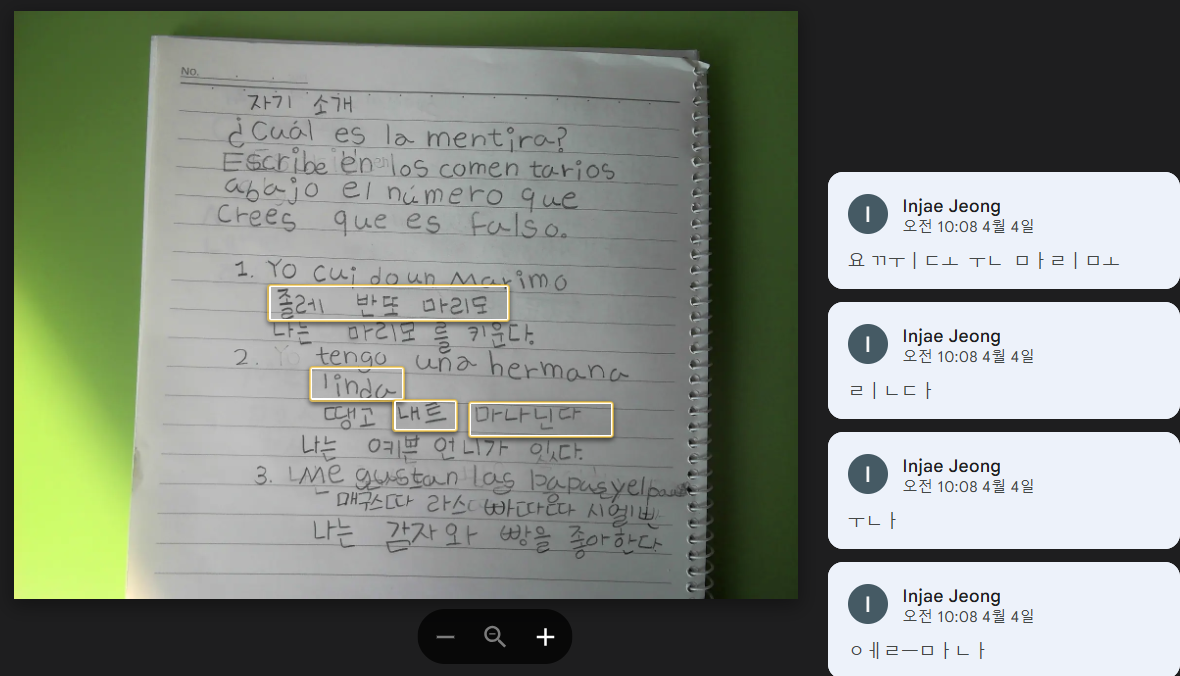 No.
자기 소개
¿Cuál es la mentira?
Escribe en los comentarios
abajo el número que
Crees que es falso.
1. Yo cuido un Marimo
졸레 반또 마리모
나는 마리모를 키운다.
2. Yo tengo una hermana
linda
땡고 내트 마나닌다
나는 예쁜 언니가 있다.
3. Me gustan las papas y el pan
매구스따 라스 빠따따 시엘빤
나는 감자와 빵을 좋아한다.
I
Injae Jeong
오전 10:08 4월 4일
요 ㄲㅜㅣㄷㅗ ㅜㄴ ㅁㅏㄹㅣㅁㅗ
I
Injae Jeong
오전 10:08 4월 4일
ㄹㅣㄴㄷㅏ
I
Injae Jeong
오전 10:08 4월 4일
ㅜㄴㅏ
I
Injae Jeong
오전 10:08 4월 4일
ㅇㅔㄹㅡㅁㅏㄴㅏ